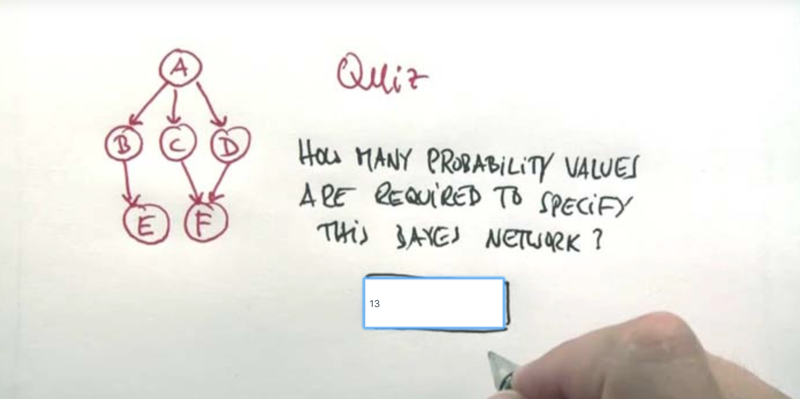 Quiz
A
B C D
E F
HOW MANY PROBABILITY VALUES
ARE REQUIRED TO SPECIFY
THIS BAYES NETWORK?
13